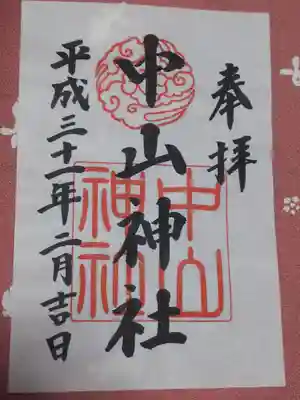 奉拝
中山神社
平成三十一年二月吉日
中山
神社